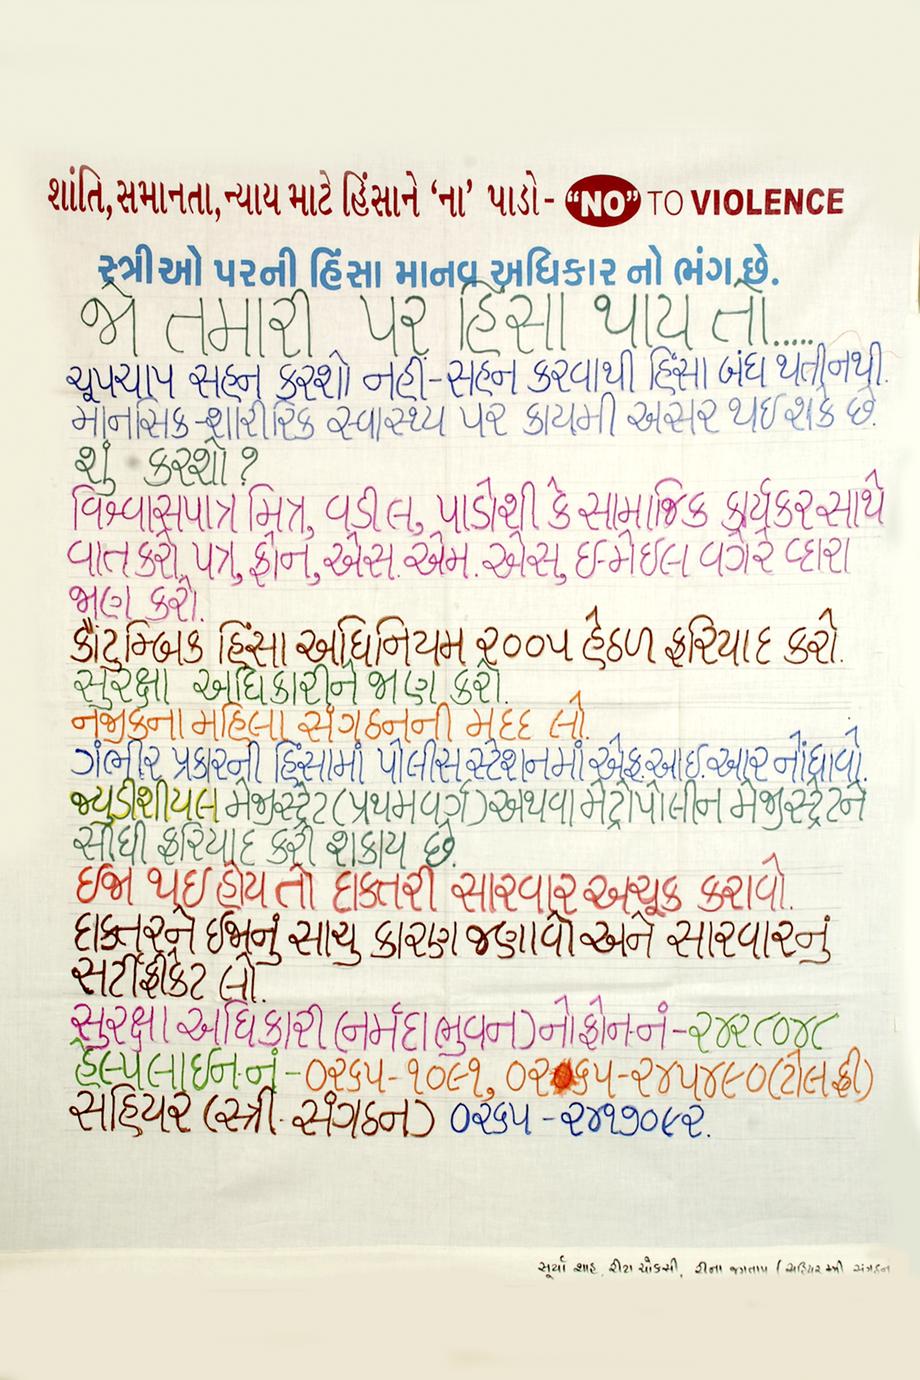 શાંતિ, સમાનતા, ન્યાય માટે હિંસાને ‘ના’ પાડો- “NO” TO VIOLENCE
સ્ત્રીઓ પરની હિંસા માનવ અધિકાર નો ભંગ છે.
જો તમારી પર હિંસા થાય તો.....
ચૂપચાપ સહન કરશો નહીં-સહન કરવાથી હિંસા બંધ થતી નથી.
માનસિક-શારીરિક સ્વાસ્થ્ય પર કાયમી અસર થઇ શકે છે.
શું કરશો ?
વિશ્વાસપાત્ર મિત્ર, વડીલ, પાડોશી કે સામાજિક કાર્યકર સાથે
વાત કરો, પત્ર, ફોન, એસ.એમ.એસ, ઈ-મેઇલ વગેરે વ્દારા
જાણ કરો.
કૌટુમ્બિક હિંસા અધિનિયમ ૨૦૦૫ હેઠળ ફરિયાદ કરો.
સુરક્ષા અધિકારીને જાણ કરો.
નજીકના મહિલા સંગઠનની મદદ લો.
ગંભીર પ્રકારની હિંસામાં પોલીસ સ્ટેશનમાં એફ.આઇ.આર નોંધાવો.
જ્યુડીશીયલ મેજીસ્ટ્રેટ (પ્રથમવર્ગ) અથવા મેટ્રોપોલીન મેજીસ્ટ્રેટને
સીધી ફરિયાદ કરી શકાય છે.
ઇજા થઇ હોય તો દાક્તરી સારવાર અચૂક કરાવો.
દાક્તરને ઈજાનું સાચુ કારણ જણાવો અને સારવારનું
સર્ટીફીકેટ લો.
સુરક્ષા અધિકારી (નર્મદા ભુવન) નો ફોન.નં-૨૪૨૮૦૪૮
હેલ્પલાઇન.નં-૦૨૬૫-૧૦૯૧, ૦૨૬૫-૨૪૫૪૯૦ (ટોલ ફ્રી)
સહિયર (સ્ત્રી. સંગઠન) ૦૨૬૫-૨૪૧૭૦૯૨.
સૂર્યા શાહ, રીટા ચૌકસી, રીના જગતાપ (સહિયર સ્ત્રી સંગઠન